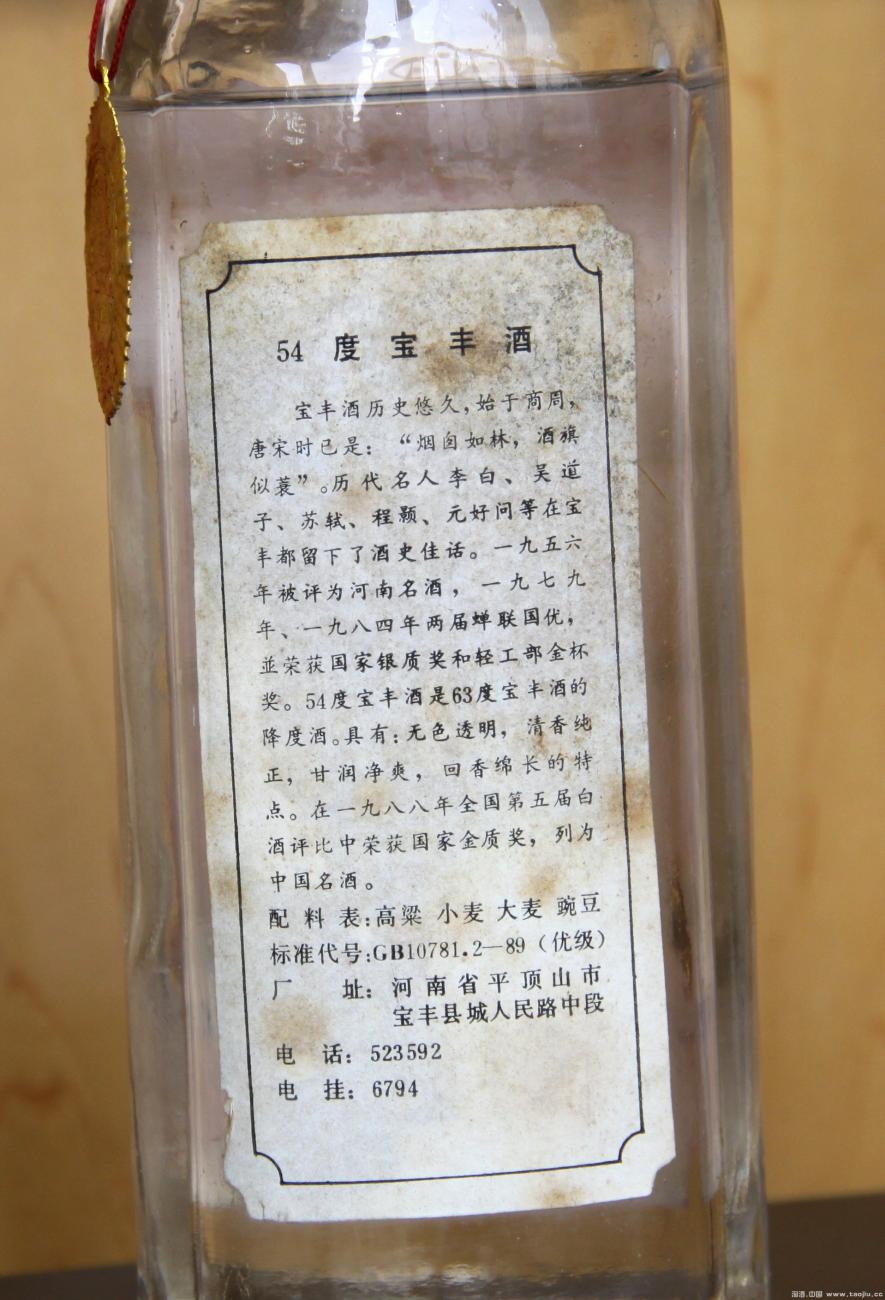 54 度宝丰酒
宝丰酒历史悠久,始于商周,
唐宋时已是：“烟囱如林，酒旗
似蓑”。历代名人李白、吴道
子、苏轼、程颢、元好问等在宝
丰都留下了酒史佳话。一九五六
年被评为河南名酒，一九七九
年、一九八四年两届蝉联国优，
並荣获国家银质奖和轻工部金杯
奖。54度宝丰酒是63度宝丰酒的
降度酒。具有：无色透明，清香纯
正，甘润净爽，回香绵长的特
点。在一九八八年全国第五届白
酒评比中荣获国家金质奖，列为
中国名酒。
配料表:高粱 小麦 大麦 豌豆
标准代号:GB10781.2—89（优级）
厂址：河南省平顶山市
宝丰县城人民路中段
电话：523592
电挂：6794
淘酒.中国 www.taojiu.cc